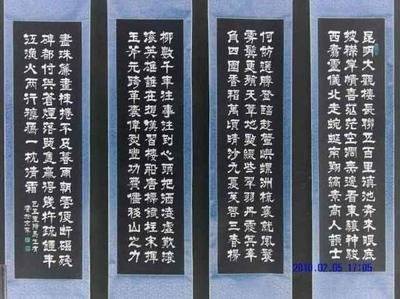 昆明大觀樓長聯五百里滇池奔來眼底
披襟岸幘喜茫茫空闊無邊看東驤神駿
西翥靈儀北走蜿蜒南翔縞素高人韻士
何妨選勝登臨趁蟹嶼螺洲梳裹就風鬟
霧鬢更蘋天葦地點綴些翠羽丹霞莫辜
負四圍香稻萬頃晴沙九夏芙蓉三春楊
柳數千年往事注到心頭把酒凌虛歎滾
滾英雄誰在想漢習樓船唐標鐵柱宋揮
玉斧元跨革囊偉烈豐功費盡移山之力
盡珠簾畫棟捲不及暮雨朝雲便斷碣殘
碑都付與蒼煙落照只贏得幾杵疏鐘半
江漁火兩行秋雁一枕清霜
2010.02.05 17:05